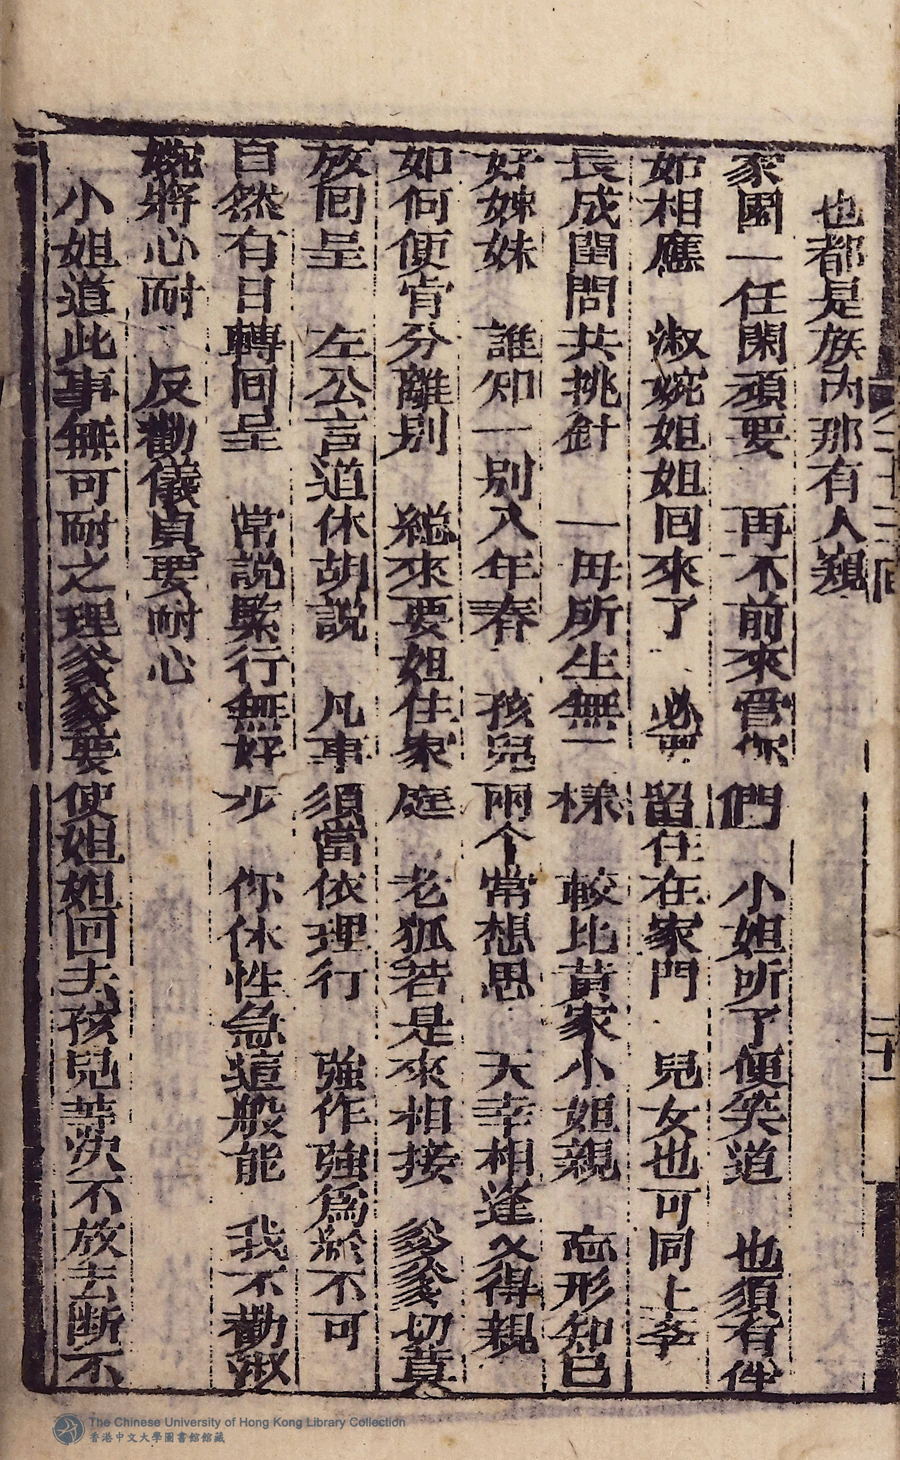 也都是族內那有人覌
家園一任閑頑耍　再不前來管你們　小姐听了便笑道　也須有伴
如相應　淑婉姐姐囘來了　必要留住在家門　兒女也可同上李
長成閨閫共挑針　一母所生無二樣　較比黃家小姐親　忘形知己
好姊妹　誰知一別八年春　孩兒兩个常想思　天幸相逢又得親
如何便肯分離别　縂來要姐住家庭　老狐若是來相接　爹爹切莫
放囘呈　左公言道休胡説　凡事須當依理行　強作強爲　不可
自然有日轉囘呈　常説緊行無好步　你休性急這般能　我不勸淑
婉將心耐　反勸儀貞要耐心
小姐道此事無可耐之理爹爹要使姐姐回去孩兒等决不放去断不
二十一
The Chinese University of Hong Kong Library Collection
香港中文大學圖書館館藏